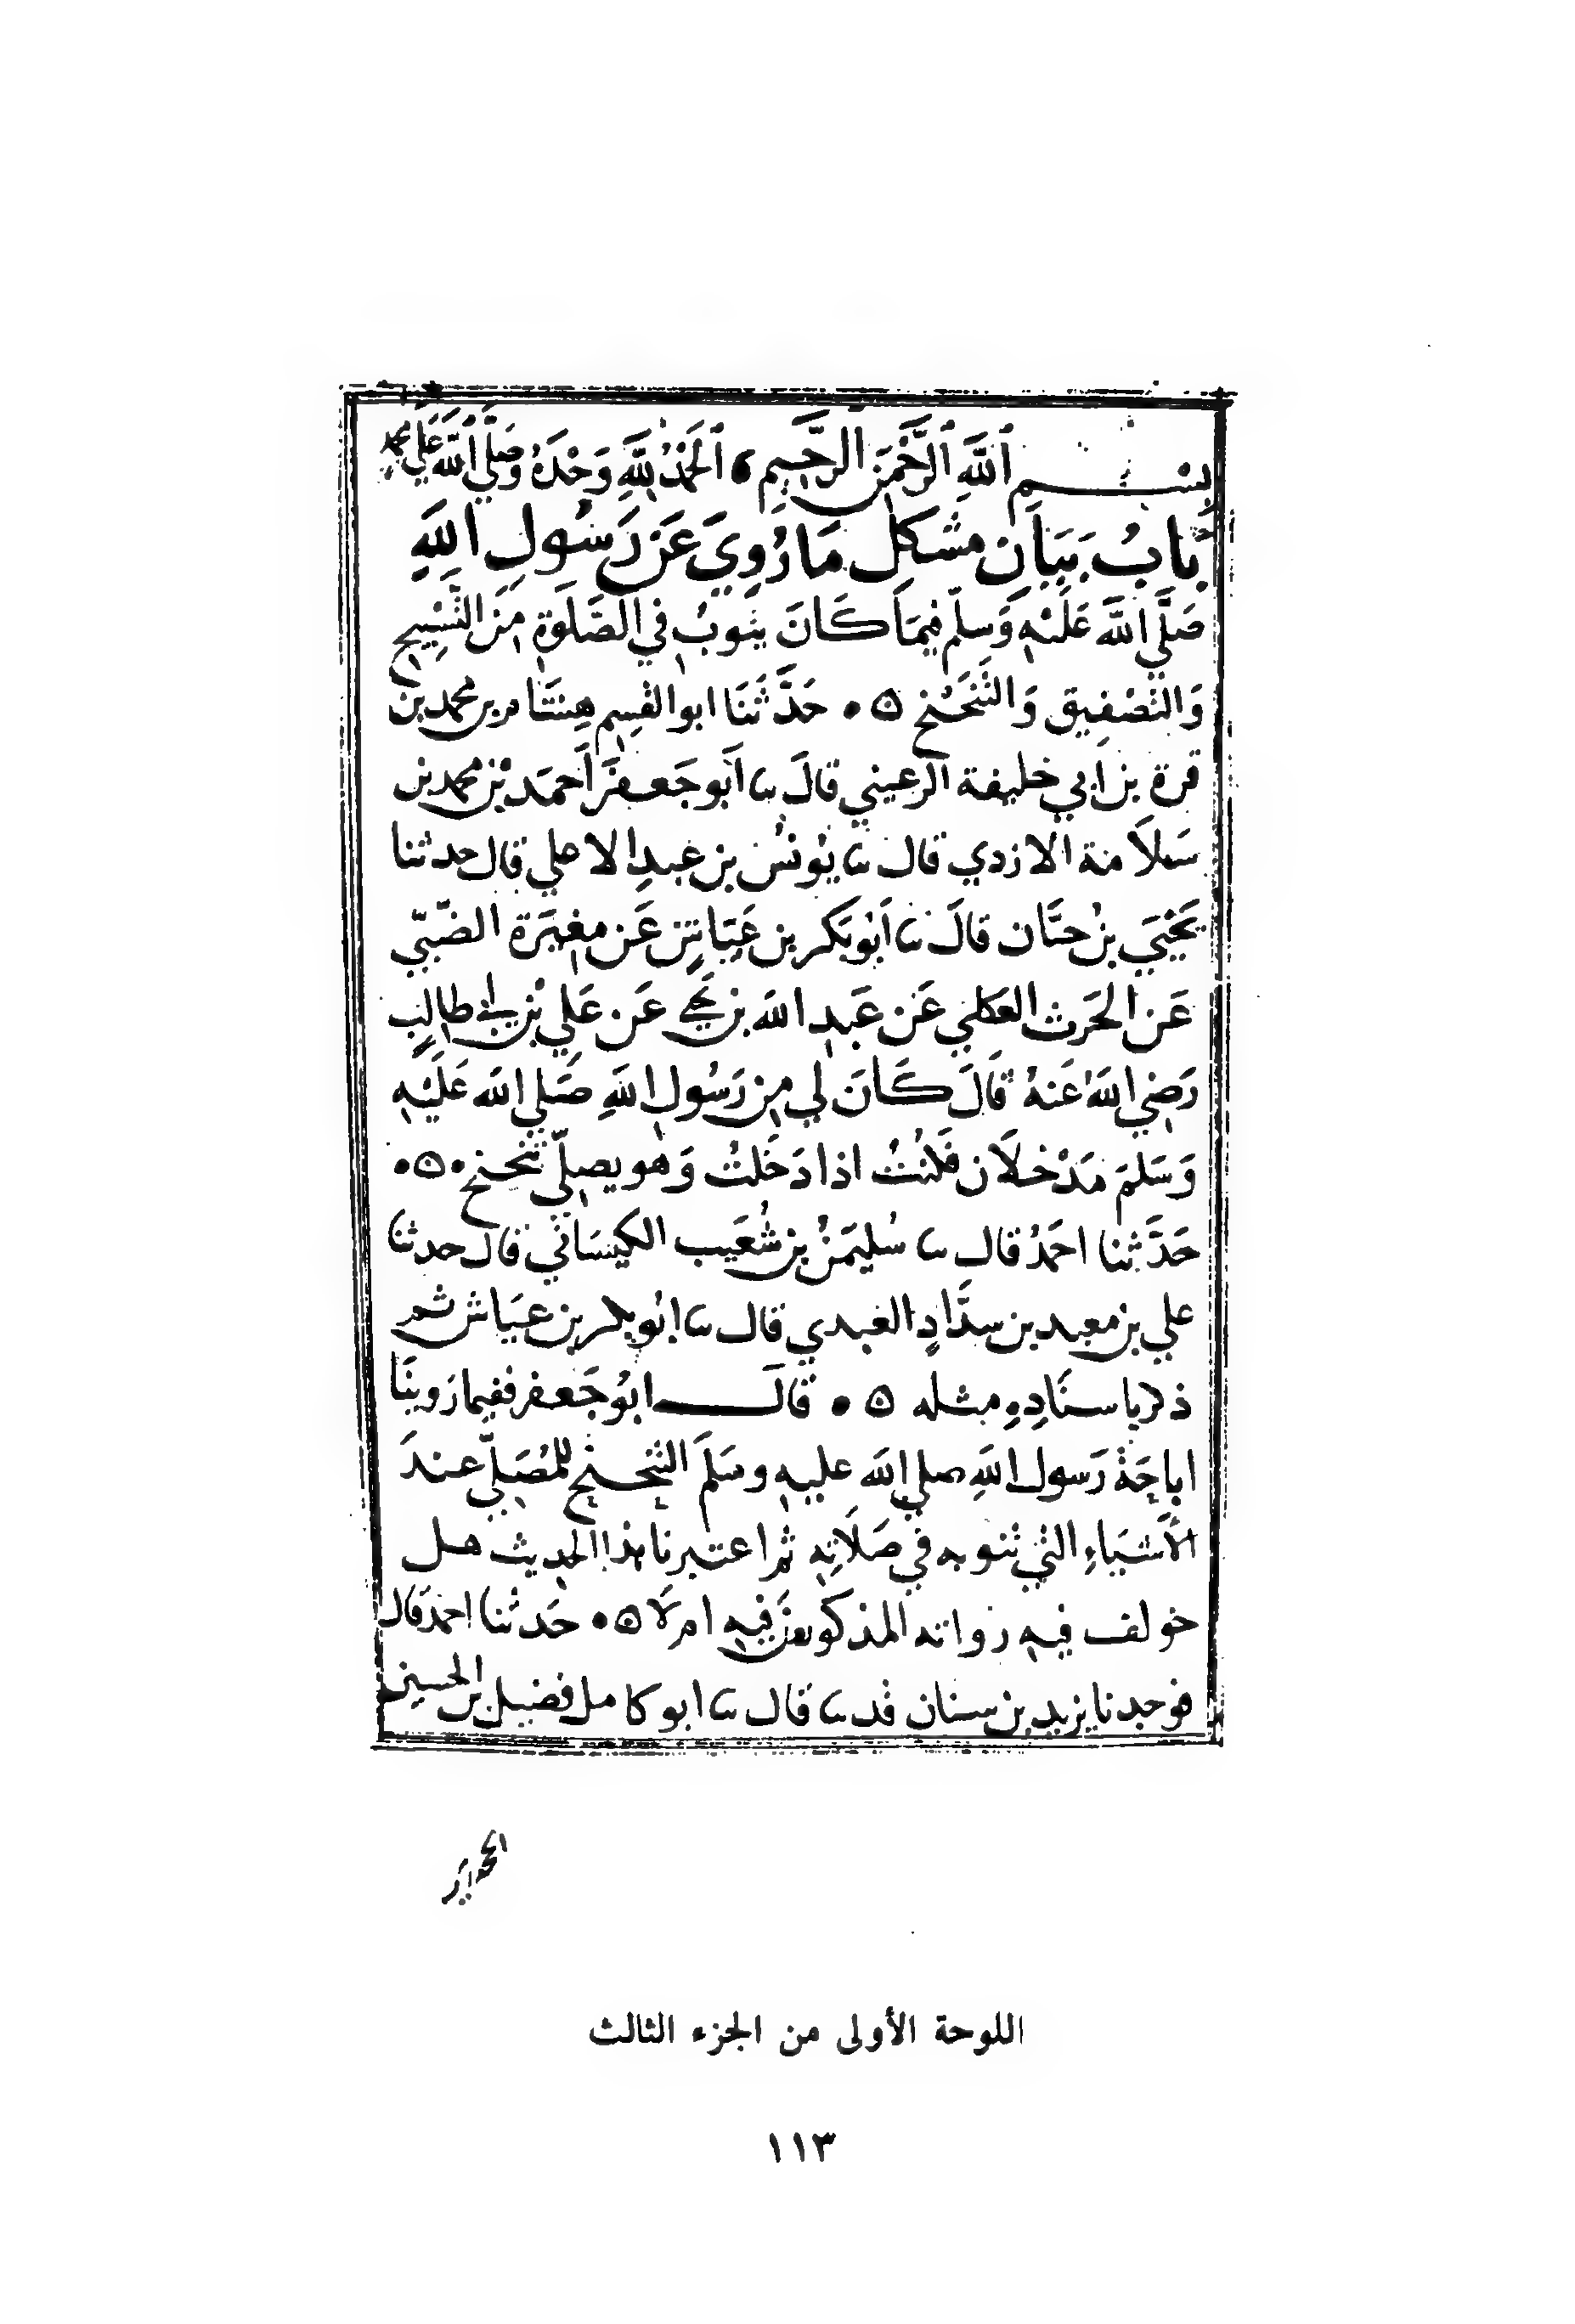 بسم الله الرحمن الرحيم، الحمد لله وحده وصلى الله على محمد
باب بيان مشكل ما روي عن رسول الله
صلي الله عليه وسلم فيما كان ينوب في الصلوة من التسبيح
والتصفيق والتنحنح ٥ • حدثنا ابو القسم هشام بن محمد بن
قرة بن ابي خليفة الرعيني قال ثنا ابو جعفر احمد بن محمد بن
سلامة الازدي قال ثنا يونس بن عبد الاعلي قال حدثنا
يحيي بن حسان قال ثنا ابو بكر بن عياش عن مغيرة الضبي
عن الحرث العكلي عن عبد الله بن نجي عن علي بن ابي طالب
رضي الله عنه قال كان لي من رسول الله صلي الله عليه
وسلم مدخلان فكنت اذا دخلت وهو يصلي تنحنح • ٥ •
حدثنا احمد قال ثنا سليمن بن شعيب الكيساني قال حدثنا
علي بن معبد بن شداد العبدي قال ثنا ابو بكر بن عياش ثم
ذكر باسناده مثله ٥ • قال ابو جعفر ففيما روينا
اباحة رسول الله صلي الله عليه وسلم التنحنح للمصلي عند
الأشياء التي تنوبه في صلاته ثم اعتبرنا هذا الحديث هل
خولف فيه رواته المذكورين فيه ام لا ٥ • حدثنا احمد قال
فوجدنا يزيد بن سنان قد ثنا قال ثنا ابو كامل فضيل بن الحسين
اللوحة الأولى من الجزء الثالث
١١٣